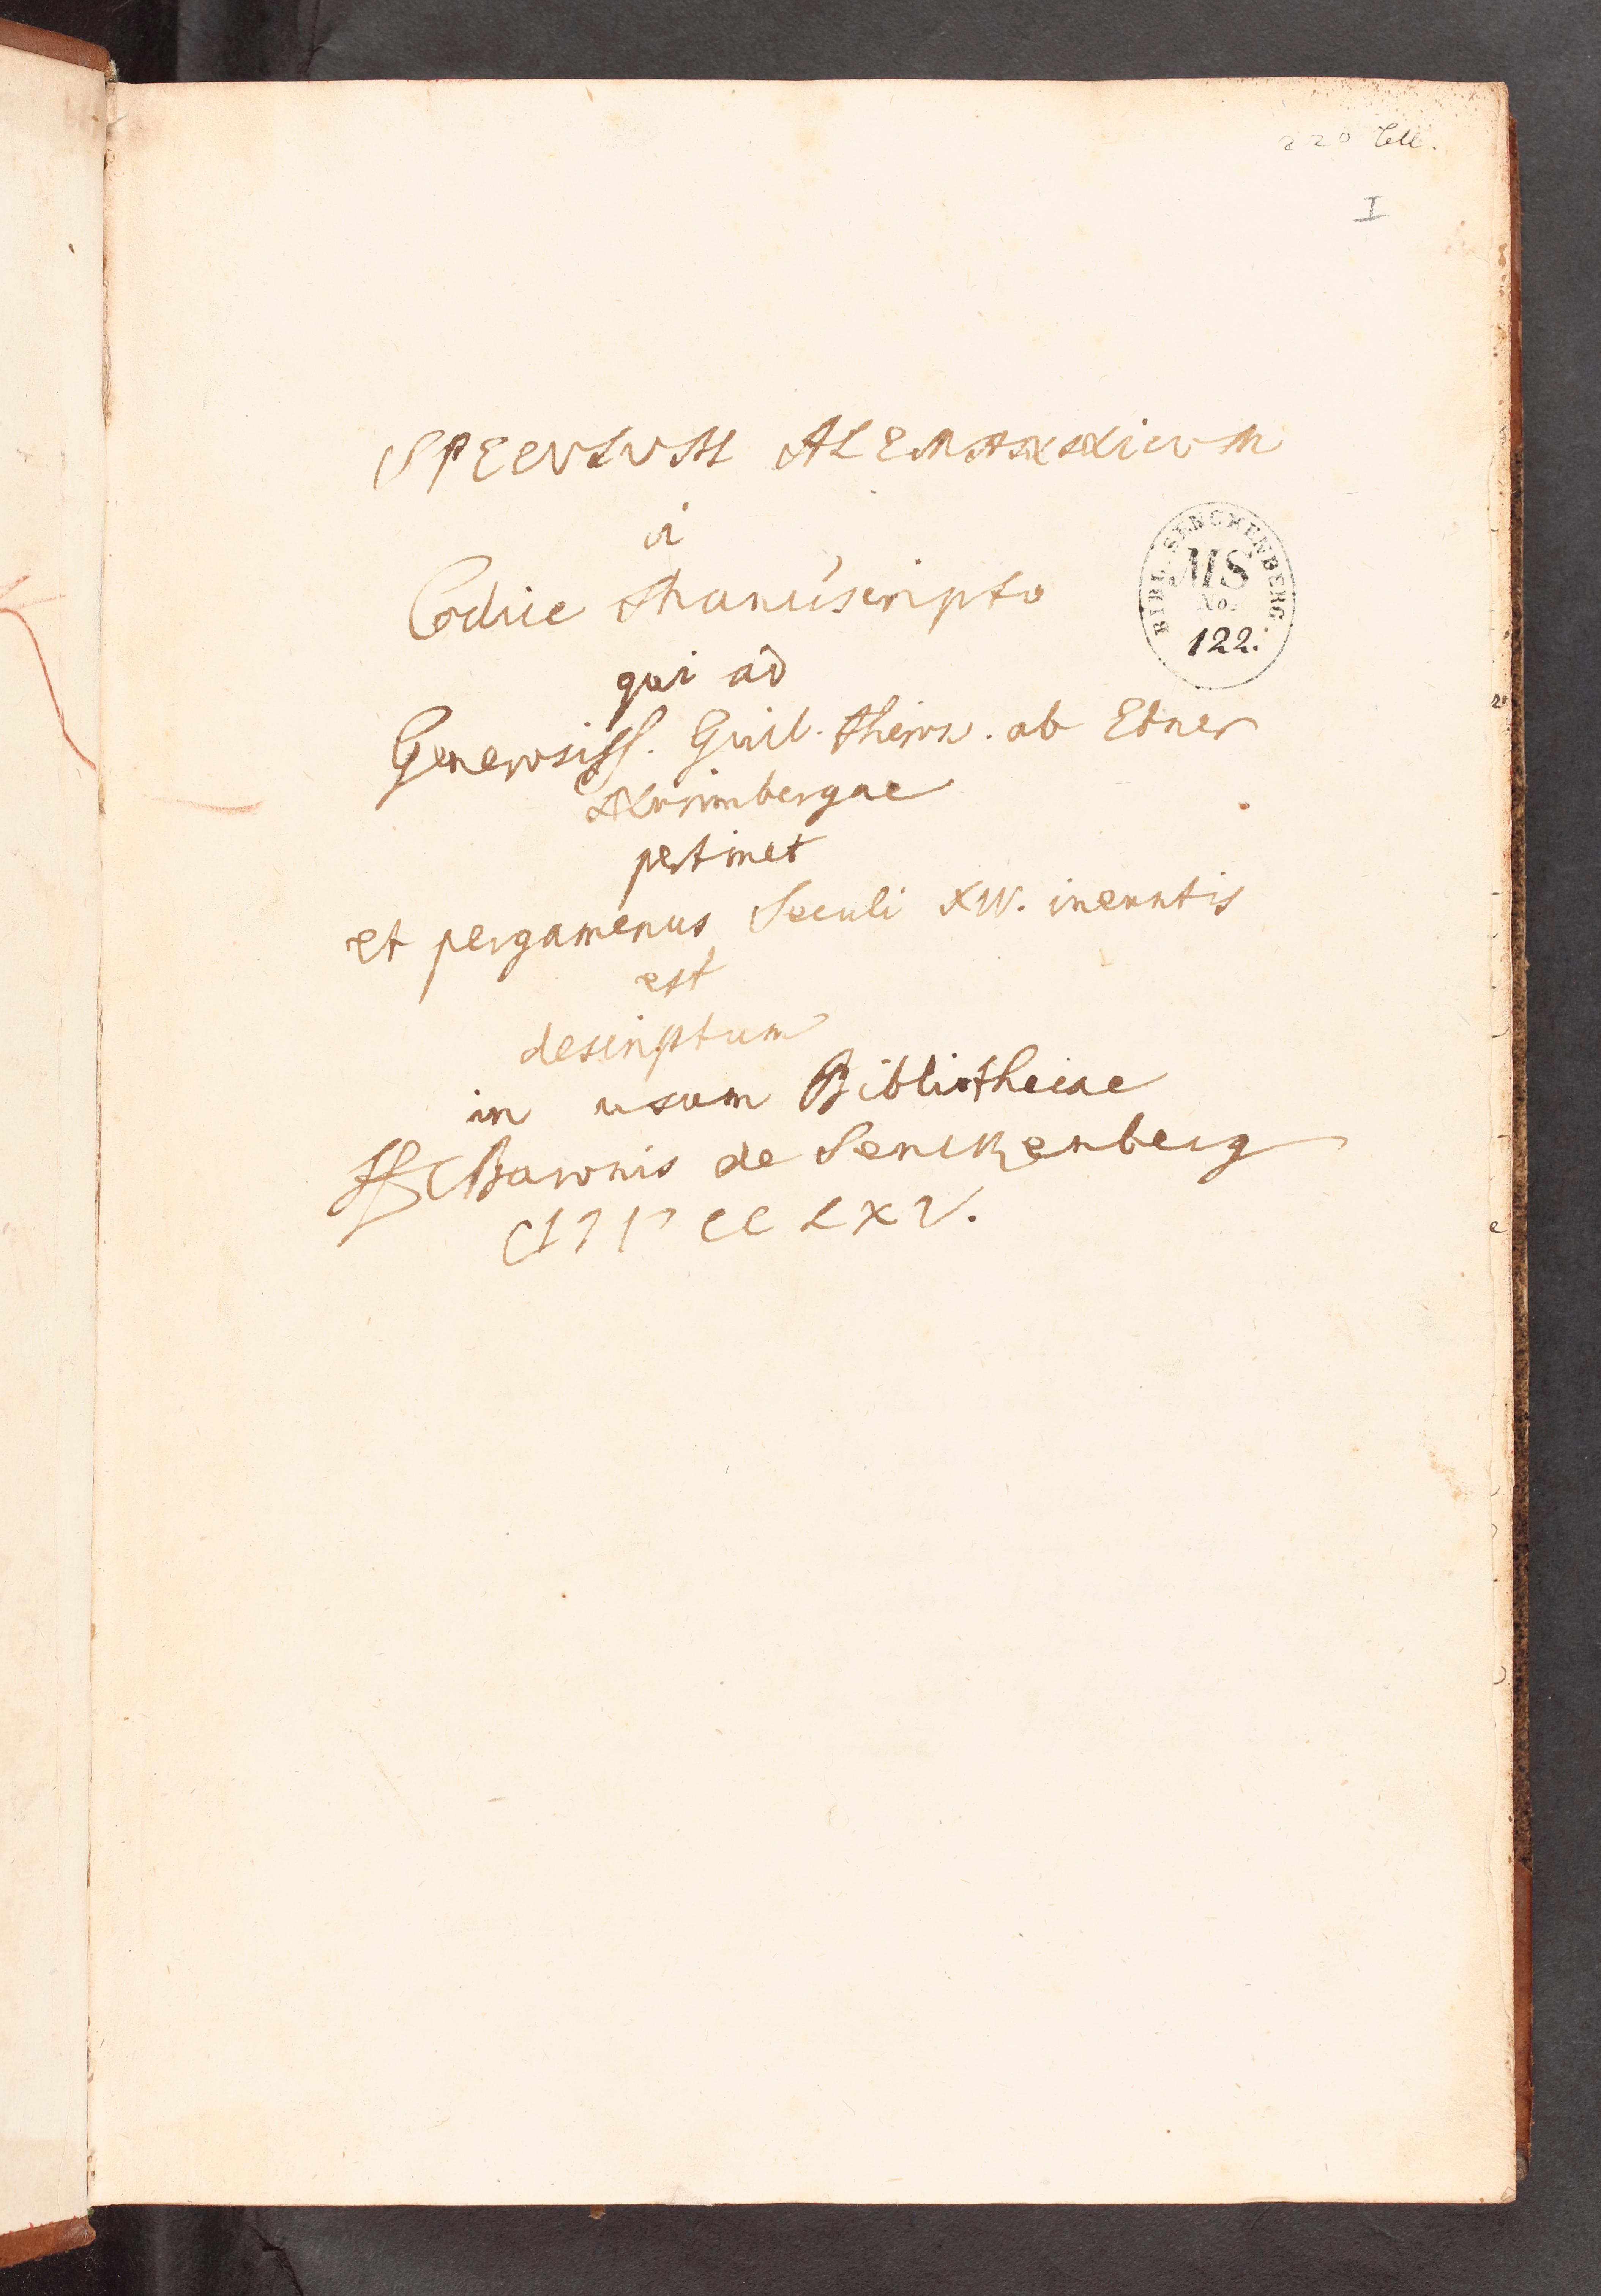 220 bll.
I
SPECVLVM ALEMANNICVM
Codice Manuscripto
BIBL. SENCKENBERG.
MS
No.
122.
qui ad
Generosiss. Guil. Hieron. ab Ebner
Nurimbergae
pertinet
et pergamenus Seculi XIV. ineuntis
est
descriptum
in usum Bibliothecae
Baronis de Senckenberg
CIƆIƆCCLXV.